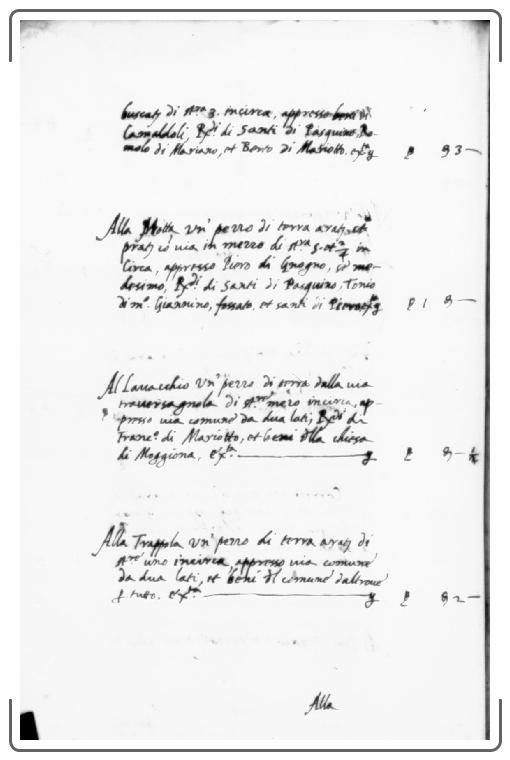 buscatj di st.ra 3. incirca, appresso beni di
Camaldoli, Rdi di Santi di Pasquino, Ro-
molo di Mariano, et Berto di Mariotto. etc.
Alla Motta un' pezzo di terra aratj et
pratj cō via in mezzo di st.ra 5. et 2/4 in
Circa, appresso Piero di Gnogno, se me-
desimo, Rdi di Santi di Pasquino, Tonio
di m.o Giannino, fossato, et santi di
Al Lavacchio un' pezzo di terra dalla via
traversagnola di st.ro mezo incirca, ap-
presso via comune da dua lati, Rdi di
Franc.o di Mariotto, et beni della chiesa
di Moggiona,
Alla Trappola un' pezzo di terra aratj di
st.ro uno incirca appresso via comune
da dua lati, et beni del comune daltrove
tutto.
Alla